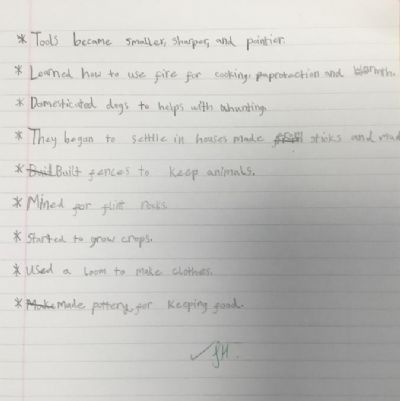 * Tools became smaller, sharper, and pointier.
* Learned how to use fire for cooking, paprotaction and warmth.
* Domesticated dogs to helps with whunting.
* They began to settle in houses made sticks and
* Built fences to keep animals.
* Mined for flint rocks.
* Started to grow crops.
* Used a loom to make clothes.
* Make Made pottery for keeping food.